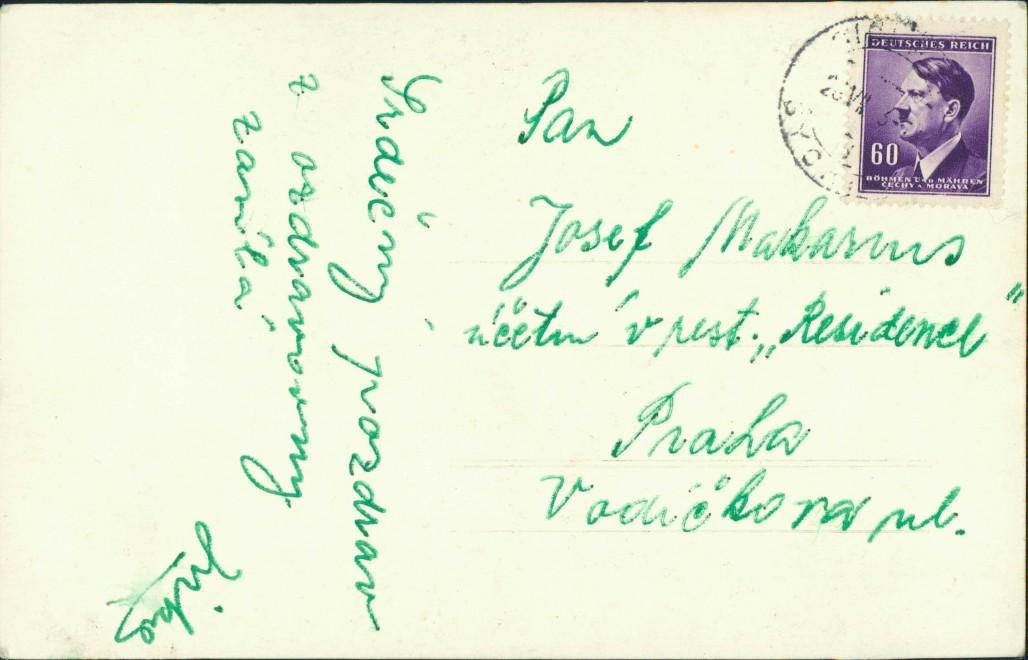 DEUTSCHES REICH
60
BÖHMEN UND MÄHREN
ČECHY A MORAVA
Pan
Josef Makarius
účetní v rest. „Residence"
Praha
Vodičkova ul.
Srdečný pozdrav
z ozdravovny
zasílá